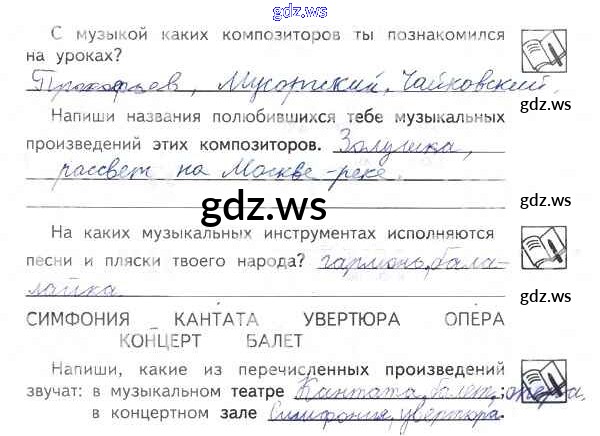 gdz.ws
С музыкой каких композиторов ты познакомился
на уроках?
Прокофьев, Мусоргский, Чайковский.
gdz.ws
Напиши названия полюбившихся тебе музыкальных
произведений этих композиторов. Золушка,
рассвет на Москве-реке.
gdz.ws
gdz.ws
На каких музыкальных инструментах исполняются
песни и пляски твоего народа? гармонь, бала-
лайка
gdz.ws
СИМФОНИЯ КАНТАТА УВЕРТЮРА ОПЕРА
КОНЦЕРТ БАЛЕТ
Напиши, какие из перечисленных произведений
звучат: в музыкальном театре Кантата, балет, опера,
в концертном зале Симфония, увертюра.
gdz.ws